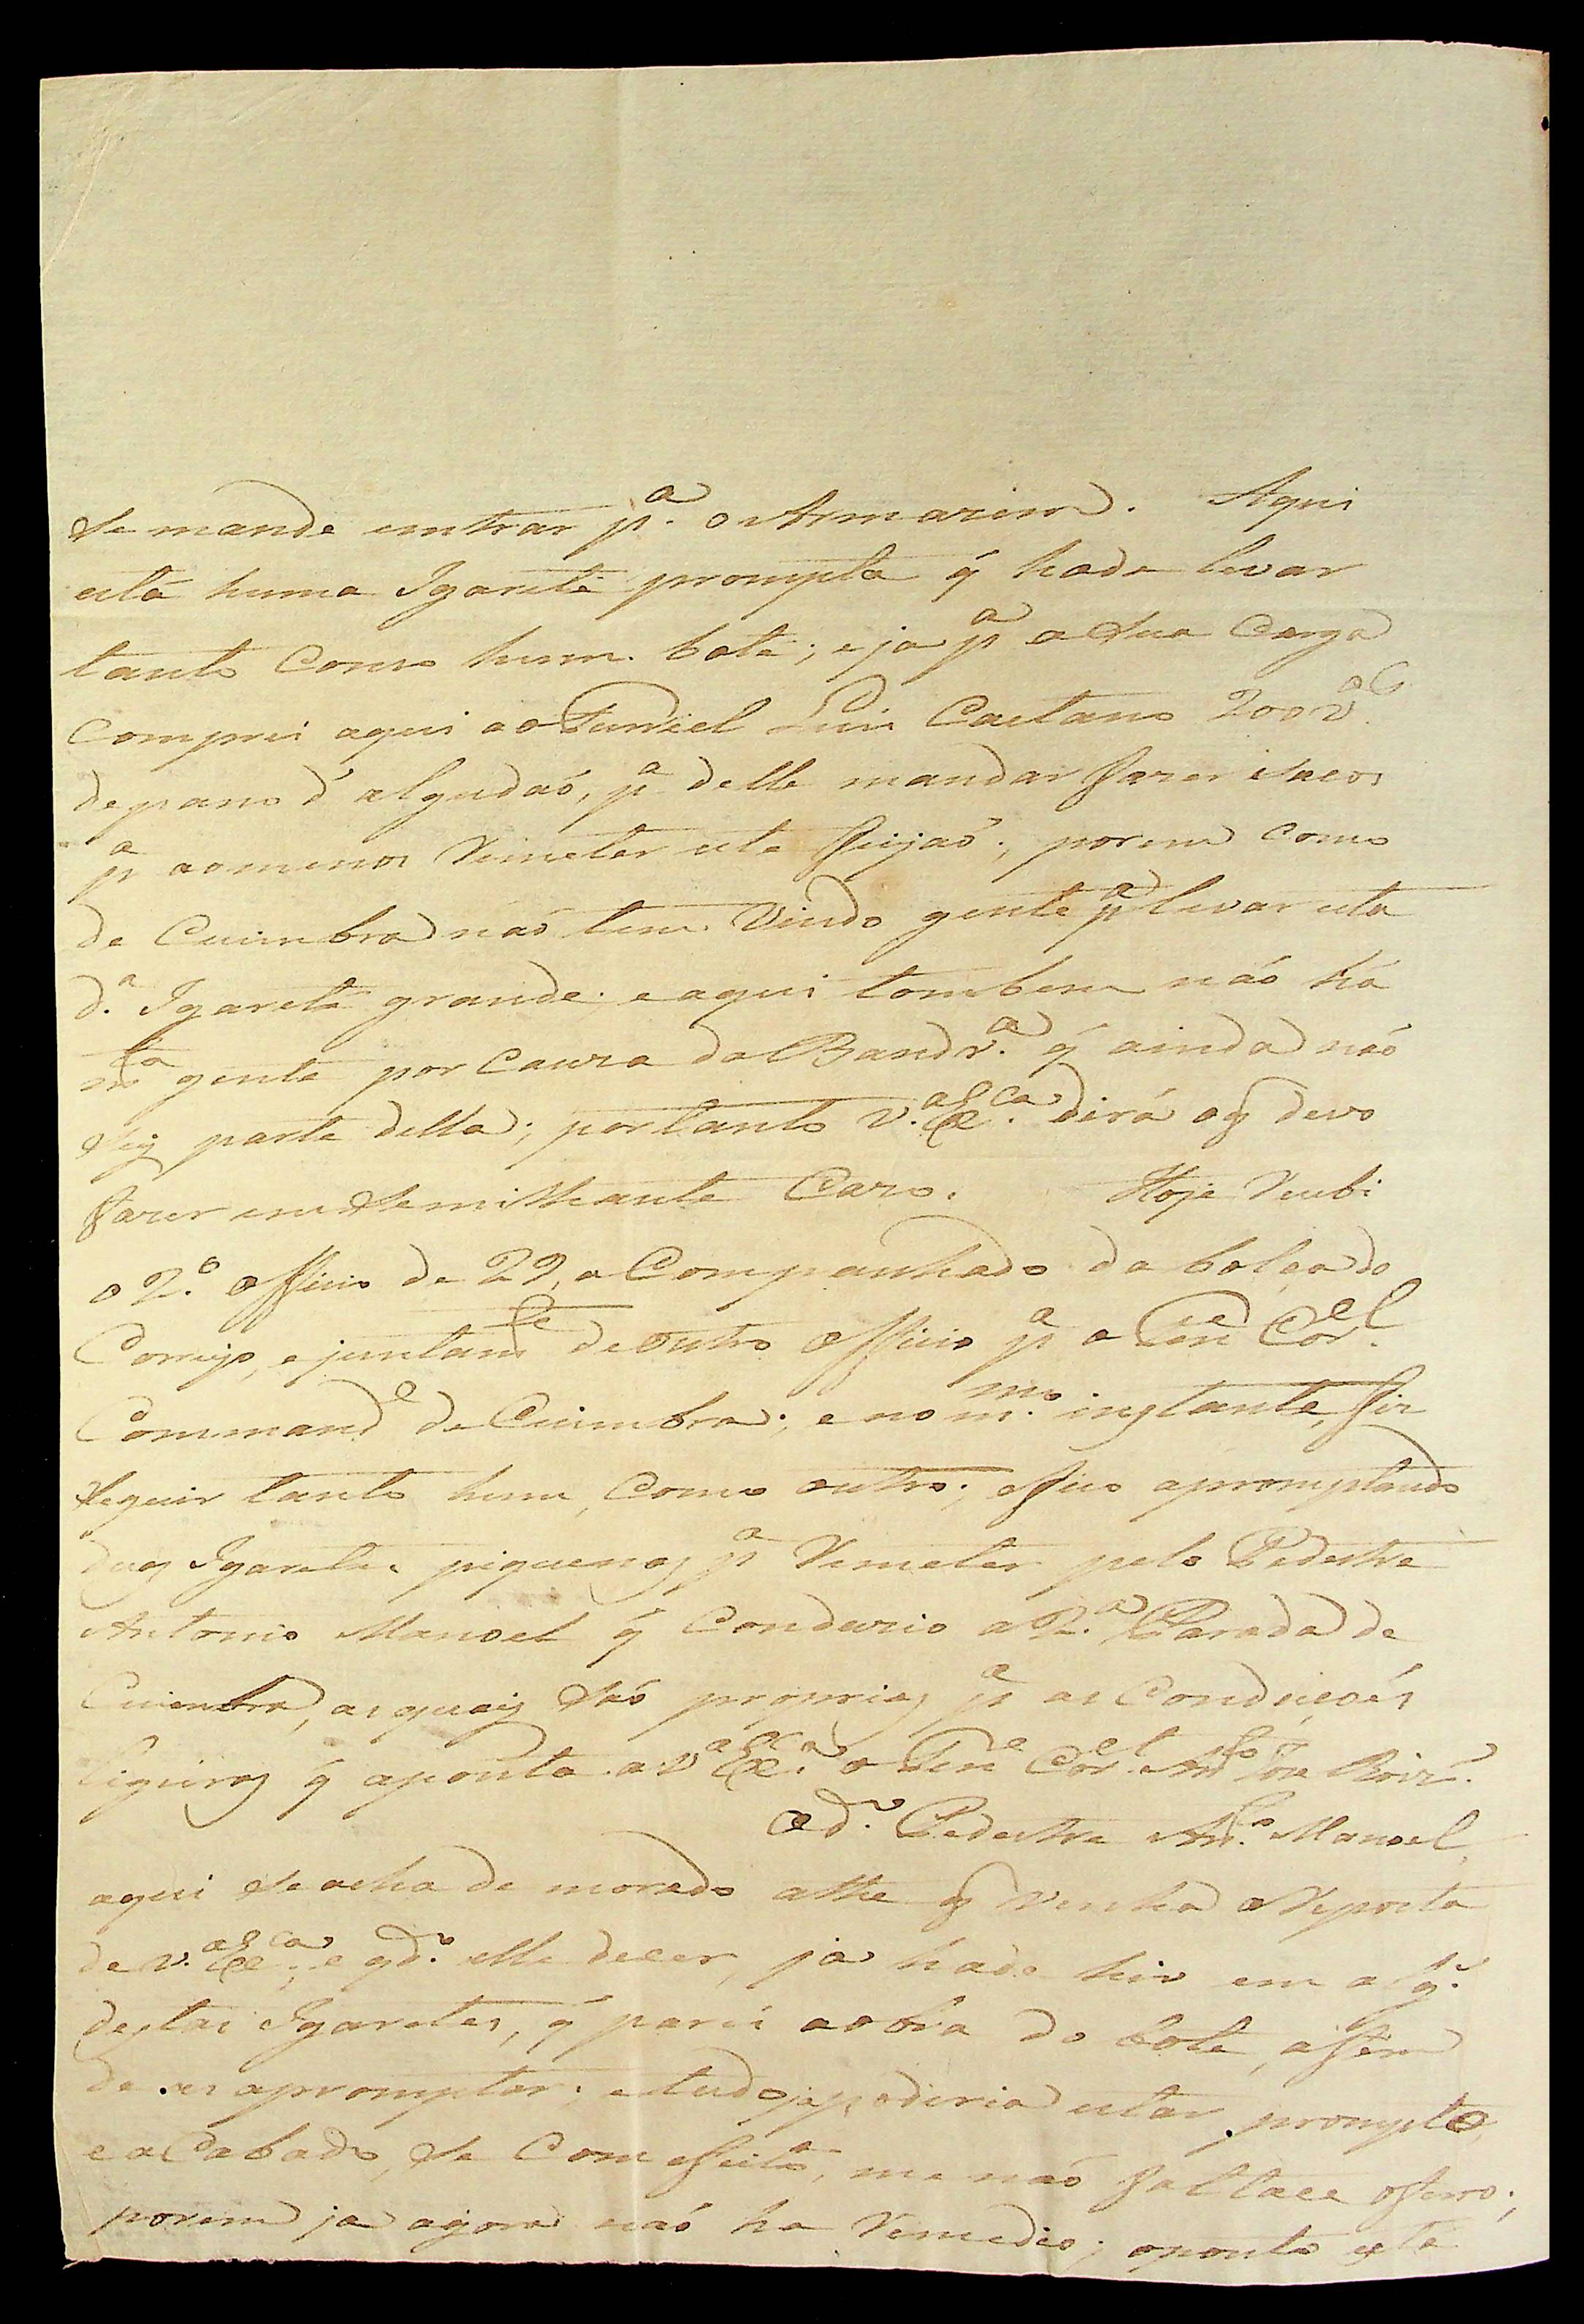 se mande emtrar p.ª o Armazem. Aqui
está huma Igarité prompta q̃ hade levar
tanto Como hum bote; e ja p.ª a sua Carga
comprei aqui ao Furriel Luis Caetano 200 v.as
de pano d'algudaõ, p.ª delle mandar fazer sacos
p.ª ao menos Remeter este feijaõ; porem como
de Cuimbra naõ tem Vindo gente p.ª levar esta
d.ª Igarité grande; e aqui tombem naõ há
m.ta gente por Cauza da Bandr.ª q̃ ainda naõ
parte della; portanto V. Ex.ca dirá o q̃ devo
fazer em semilhante Cazo. Hoje Recebi
o 2.º officio de 29, a Companhado da bolça do
Correyo, e juntam.te de outro officio p.ª o Ten.e Cor.el
Command.e de Cuimbra; e no m.mo instante, fiz
seguir tanto hum, Como outro; e fico apromptando
duas Igarites piquenas p.ª Remeter pelo Pedestre
Antonio Manoel q̃ Conduzio a 2.ª Parada de
Cuimbra, as quaiz saõ propriaz p.ª as Conduçoés
ligeiras q̃ aponta a V.ª Ex.ca o Ten.e Cor.el An.to Joze Roiz.
O d.º Pedestre An.to Manoel,
aqui se acha de morado athe q̃ Venha a Reposta
de V.ª Ex.ca; e qd.º elle decer, ja hade hir em alg.ª
destas Igarites, q̃ parei a obra do bote, a fim
de as apromptar; e tudo ja poderia estar prompto,
e aCabado, se Com efeito, me naõ faltace o ferro;
porem ja agora naõ ha Remedio; o ponto esta